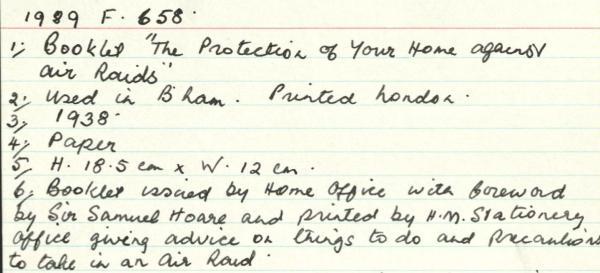 1989 F. 658.
1; Booklet "The Protection of Your Home against
air Raids"
2; Used in B'ham. Printed London.
3; 1938.
4; Paper
5; H. 18.5 cm x W. 12 cm.
6; Booklet issued by Home Office with foreword
by Sir Samuel Hoare and printed by H.M. Stationery
Office giving advice on things to do and Precautions
to take in an Air Raid.